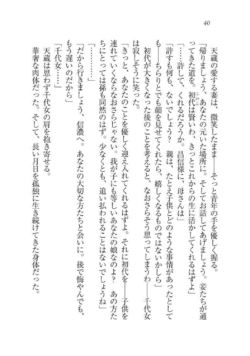 40
　天蔵の愛する妻は、微笑したまま――そっと青年の手を優しく握る。
「帰りましょう、あなたの元いた場所に。そしてお話してあげましょう。妾たちが通
ってきた道を、初代は賢いわ、きっとこれからの生に活かしてくれるはずよ」
「……許してくれるだろうか、昌信様に、母さんは」
「許すも何も、ってないではないですか？　親は、たとえ子供とどのような事情があったとして
も……ちらりとでも顔を見せてくれたら、嬉しくなるものではないかしら」
　初代が大きくなった後に家出をしたら、なおさらそう思ってしまうわ――千代女
は寂しそうに笑った。
「きっと、あなたのことを優しく迎え入れてくれるはずよ。それに初代を――子供を
連れているならなおさらじゃない。我が子にも等しいあなたの娘なのよ？　あの方た
ちにとっては孫も同然のはず。少なくとも、追い払われることはないでしょうね」
「…………」
「だから行きましょう、信濃へ。あなたの大切な方たちと会いに。後で悔やんでも、
もう遅いのだから」
「千代女……」
　天蔵は思わず千代女の肩を抱き寄せる。
　華奢な肉体だった。そして、長い月日を孤独に生き続けてきた身体だった。